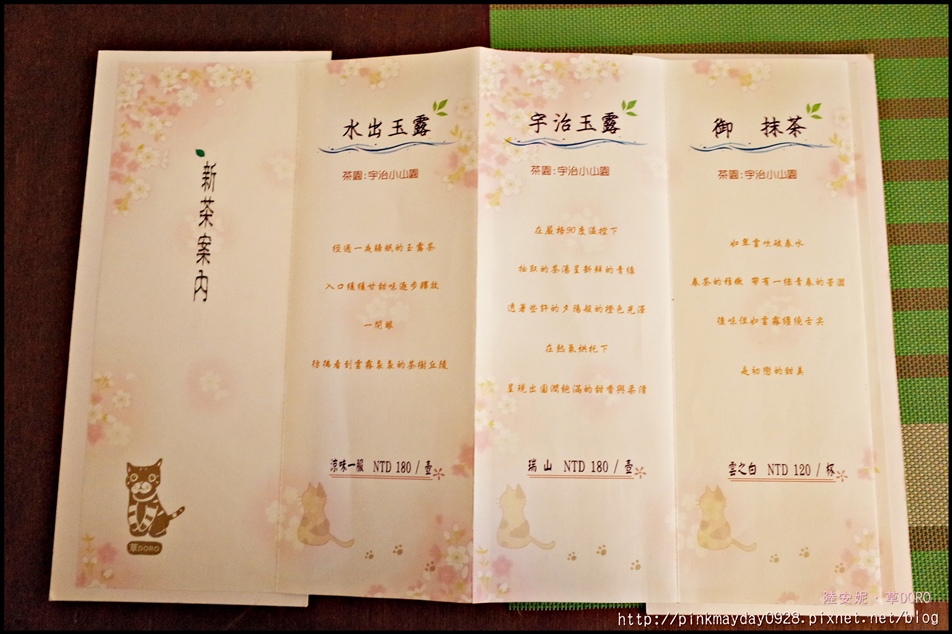 新茶案內
草DORO
水出玉露
茶園:宇治小山園
經過一夜睡眠的玉露茶
入口緩緩甘甜味逐步釋放
一閉眼
彷彿看到雲霧裊裊的茶樹丘陵
涼味一服 NTD 180 / 壺
宇治玉露
茶園:宇治小山園
在嚴格90度溫控下
抽取的茶湯呈新鮮的青綠
透著些許的夕陽般的橙色光澤
在熱氣烘托下
呈現出圓潤飽滿的甜香與柔滑
瑞山 NTD 180 / 壺
御 抹茶
茶園:宇治小山園
如墨雲吐破春水
春茶的稚嫩 帶有一絲青春的苦澀
後味恆如雲霧纏繞舌尖
是初戀的甜美
雲之白 NTD 120 / 杯
陸安妮‧草DORO
http://pinkmayday0928.pixnet.net/blog